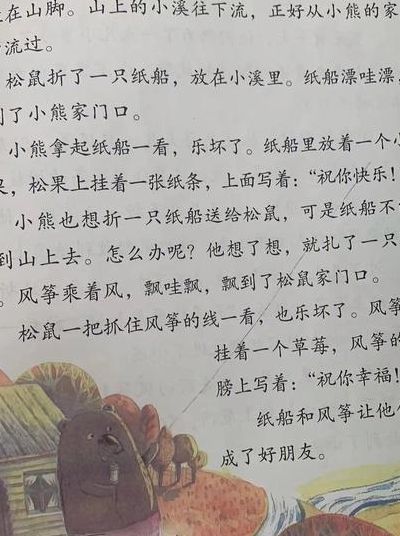 在山脚。山上的小溪往下流，正好从小熊的家
流过。
松鼠折了一只纸船，放在小溪里。纸船漂哇漂，
了小熊家门口。
小熊拿起纸船一看，乐坏了。纸船里放着一个小
，松果上挂着一张纸条，上面写着：“祝你快乐！
小熊也想折一只纸船送给松鼠，可是纸船不
到山上去。怎么办呢？他想了想，就扎了一只
。风筝乘着风，飘哇飘，飘到了松鼠家门口。
松鼠一把抓住风筝的线一看，也乐坏了。风筝
挂着一个草莓，风筝的
膀上写着：“祝你幸福！
纸船和风筝让他
成了好朋友。